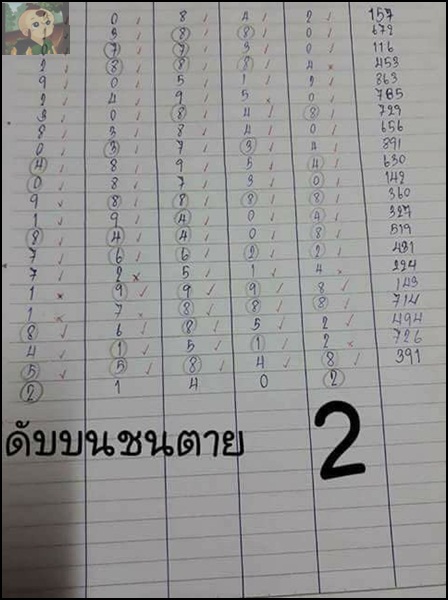 0 8 4 2 157
3 8 8 0 672
7 7 3 0 116
2 8 8 8 4 453
9 0 5 1 2 863
2 4 9 5 0 785
3 0 8 4 8 729
8 3 8 4 0 656
0 3 7 3 4 891
4 8 9 5 4 630
0 8 7 3 0 142
9 8 8 8 8 360
1 9 4 0 4 327
8 4 4 0 8 519
7 6 6 2 2 481
7 2 5 1 4 224
1 9 9 9 8 143
1 7 8 8 8 714
8 6 8 5 2 494
4 1 5 1 2 726
5 5 8 4 8 391
2 1 4 0 2
ดับบนชนตาย 2